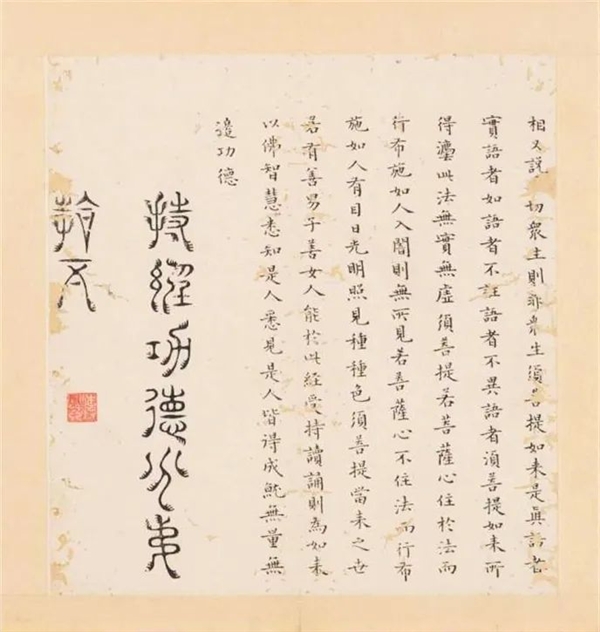 相又說 切衆生則非衆生須菩提如来是真語者
實語者如語者不誑語者不異語者須菩提如来所
得灋此法無實無虛須菩提若菩薩心住於法而
行布施如人入闇則無所見若菩薩心不住法而行布
施如人有目日光明照見種種色須菩提當来之世
若有善男子善女人能於此経受持讀誦則為如来
以佛智慧悉知是人悉見是人皆得成就無量無
邊功德
持經功德分弟
拾五